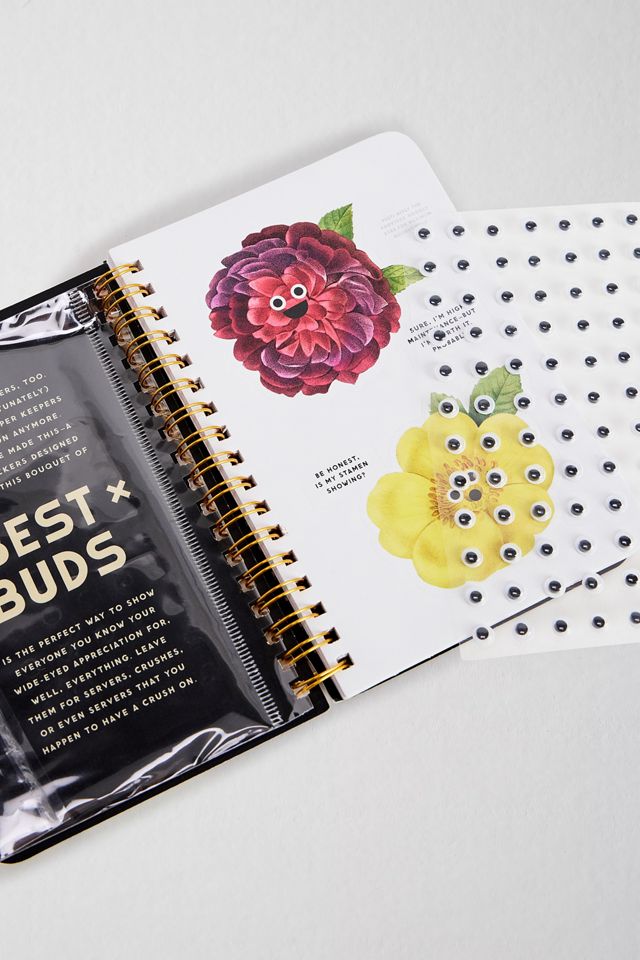 ERS, TOO.
UNATELY)
PER KEEPERS
N ANYMORE.
E MADE THIS—A
CKERS DESIGNED
THIS BOUQUET OF
BEST ×
BUDS
IS THE PERFECT WAY TO SHOW
EVERYONE YOU KNOW YOUR
WIDE-EYED APPRECIATION FOR,
WELL, EVERYTHING. LEAVE
THEM FOR SERVERS, CRUSHES,
OR EVEN SERVERS THAT YOU
HAPPEN TO HAVE A CRUSH ON.
SURE, I'M HIGH
MAINTENANCE—BUT
I'M WORTH IT.
PROBABLY.
BE HONEST,
IS MY STAMEN
SHOWING?